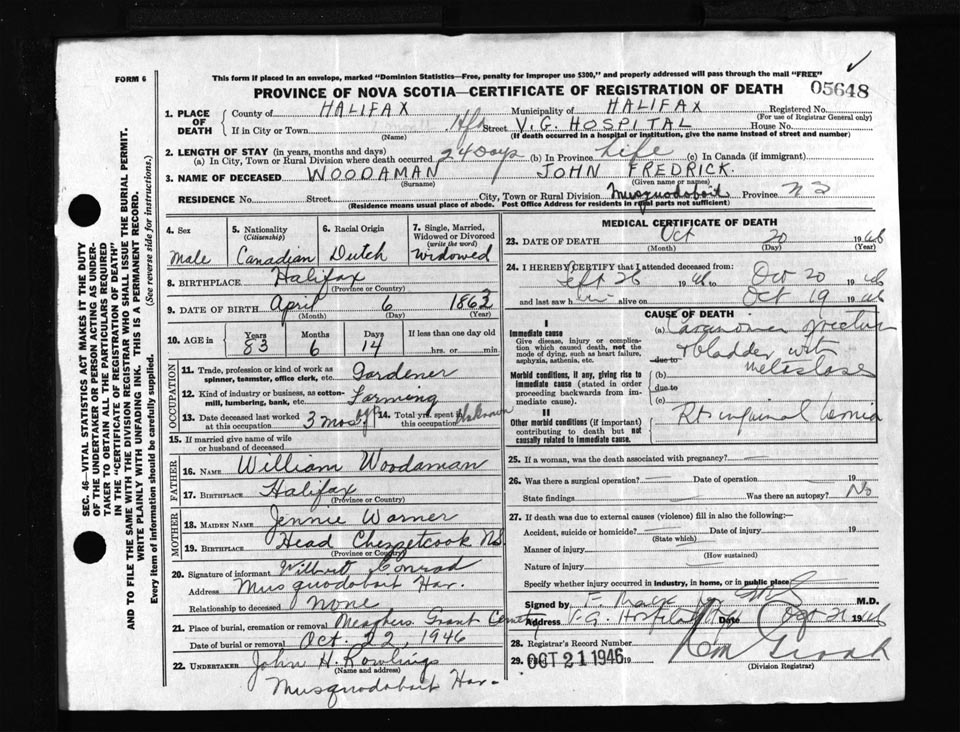 FORM 6
This form if placed in an envelope, marked "Dominion Statistics—Free, penalty for improper use $300," and properly addressed will pass through the mail "FREE"
PROVINCE OF NOVA SCOTIA—CERTIFICATE OF REGISTRATION OF DEATH 05648
1. PLACE OF DEATH County of HALIFAX Municipality of HALIFAX Registered No.
(For use of Registrar General only)
If in City or Town Hfx Street V.G. HOSPITAL House No.
(Name) (If death occurred in a hospital or institution, give the name instead of street and number)
2. LENGTH OF STAY (in years, months and days)
(a) In City, Town or Rural Division where death occurred 24 Days (b) In Province Life (c) In Canada (if immigrant)
3. NAME OF DECEASED WOODAMAN JOHN FREDRICK.
(Surname) (Given name or names)
RESIDENCE No. Street City, Town or Rural Division Musquodoboit Province N S
(Residence means usual place of abode. Post Office Address for residents in rural parts not sufficient)
4. Sex Male
5. Nationality (Citizenship) Canadian
6. Racial Origin Dutch
7. Single, Married, Widowed or Divorced (write the word) Widowed
8. BIRTHPLACE Halifax
(Province or Country)
9. DATE OF BIRTH April 6 1863
(Month) (Day) (Year)
10. AGE in Years 83 Months 6 Days 14 If less than one day old
hrs. or min.
OCCUPATION
11. Trade, profession or kind of work as spinner, teamster, office clerk, etc. Gardener
12. Kind of industry or business, as cotton-mill, lumbering, bank, etc. Farming
13. Date deceased last worked at this occupation 3 mos 14. Total yrs. spent in this occupation Unknown
15. If married give name of wife or husband of deceased
FATHER
16. NAME William Woodaman
17. BIRTHPLACE Halifax
(Province or Country)
MOTHER
18. MAIDEN NAME Jennie Warner
19. BIRTHPLACE Head Chezzetcook N.S.
(Province or Country)
20. Signature of informant Wilbert Conrad
Address Musquodoboit Har.
Relationship to deceased None
21. Place of burial, cremation or removal Meaghers Grant Cemetery
Date of burial or removal Oct. 22, 1946
22. UNDERTAKER John H. Rowlings
(Name and address)
Musquodoboit Har.
MEDICAL CERTIFICATE OF DEATH
23. DATE OF DEATH Oct 20 1946
(Month) (Day)
24. I HEREBY CERTIFY that I attended deceased from:
Sept 26 1946 to Oct 20 1946
and last saw him alive on Oct 19 1946
CAUSE OF DEATH
I
Immediate cause
Give disease, injury or complication which caused death, not the mode of dying, such as heart failure, asphyxia, asthenia, etc.
(a) Carcinoma
due to bladder with
metastases
Morbid conditions, if any, giving rise to immediate cause (stated in order proceeding backwards from immediate cause).
(b)
due to
(c)
II
Other morbid conditions (if important) contributing to death but not causally related to immediate cause.
Rt inguinal hernia
25. If a woman, was the death associated with pregnancy?
26. Was there a surgical operation? Date of operation 19
State findings Was there an autopsy? No
27. If death was due to external causes (violence) fill in also the following:—
Accident, suicide or homicide? Date of injury 19
(State which)
Manner of injury
(How sustained)
Nature of injury
Specify whether injury occurred in industry, in home, or in public place
Signed by F. M.D.
Address V.G. Hospital Hfx Date Oct 21 1946
28. Registrar's Record Number
29. OCT 21 1946 19
(Division Registrar)
SEC. 46—VITAL STATISTICS ACT MAKES IT THE DUTY
OF THE UNDERTAKER OR PERSON ACTING AS UNDERTAKER TO OBTAIN ALL THE PARTICULARS REQUIRED
IN THE "CERTIFICATE OF REGISTRATION OF DEATH"
AND TO FILE THE SAME WITH THE DIVISION REGISTRAR WHO SHALL ISSUE THE BURIAL PERMIT.
WRITE PLAINLY WITH UNFADING INK. THIS IS A PERMANENT RECORD.
Every item of information should be carefully supplied. (See reverse side for instructions.)